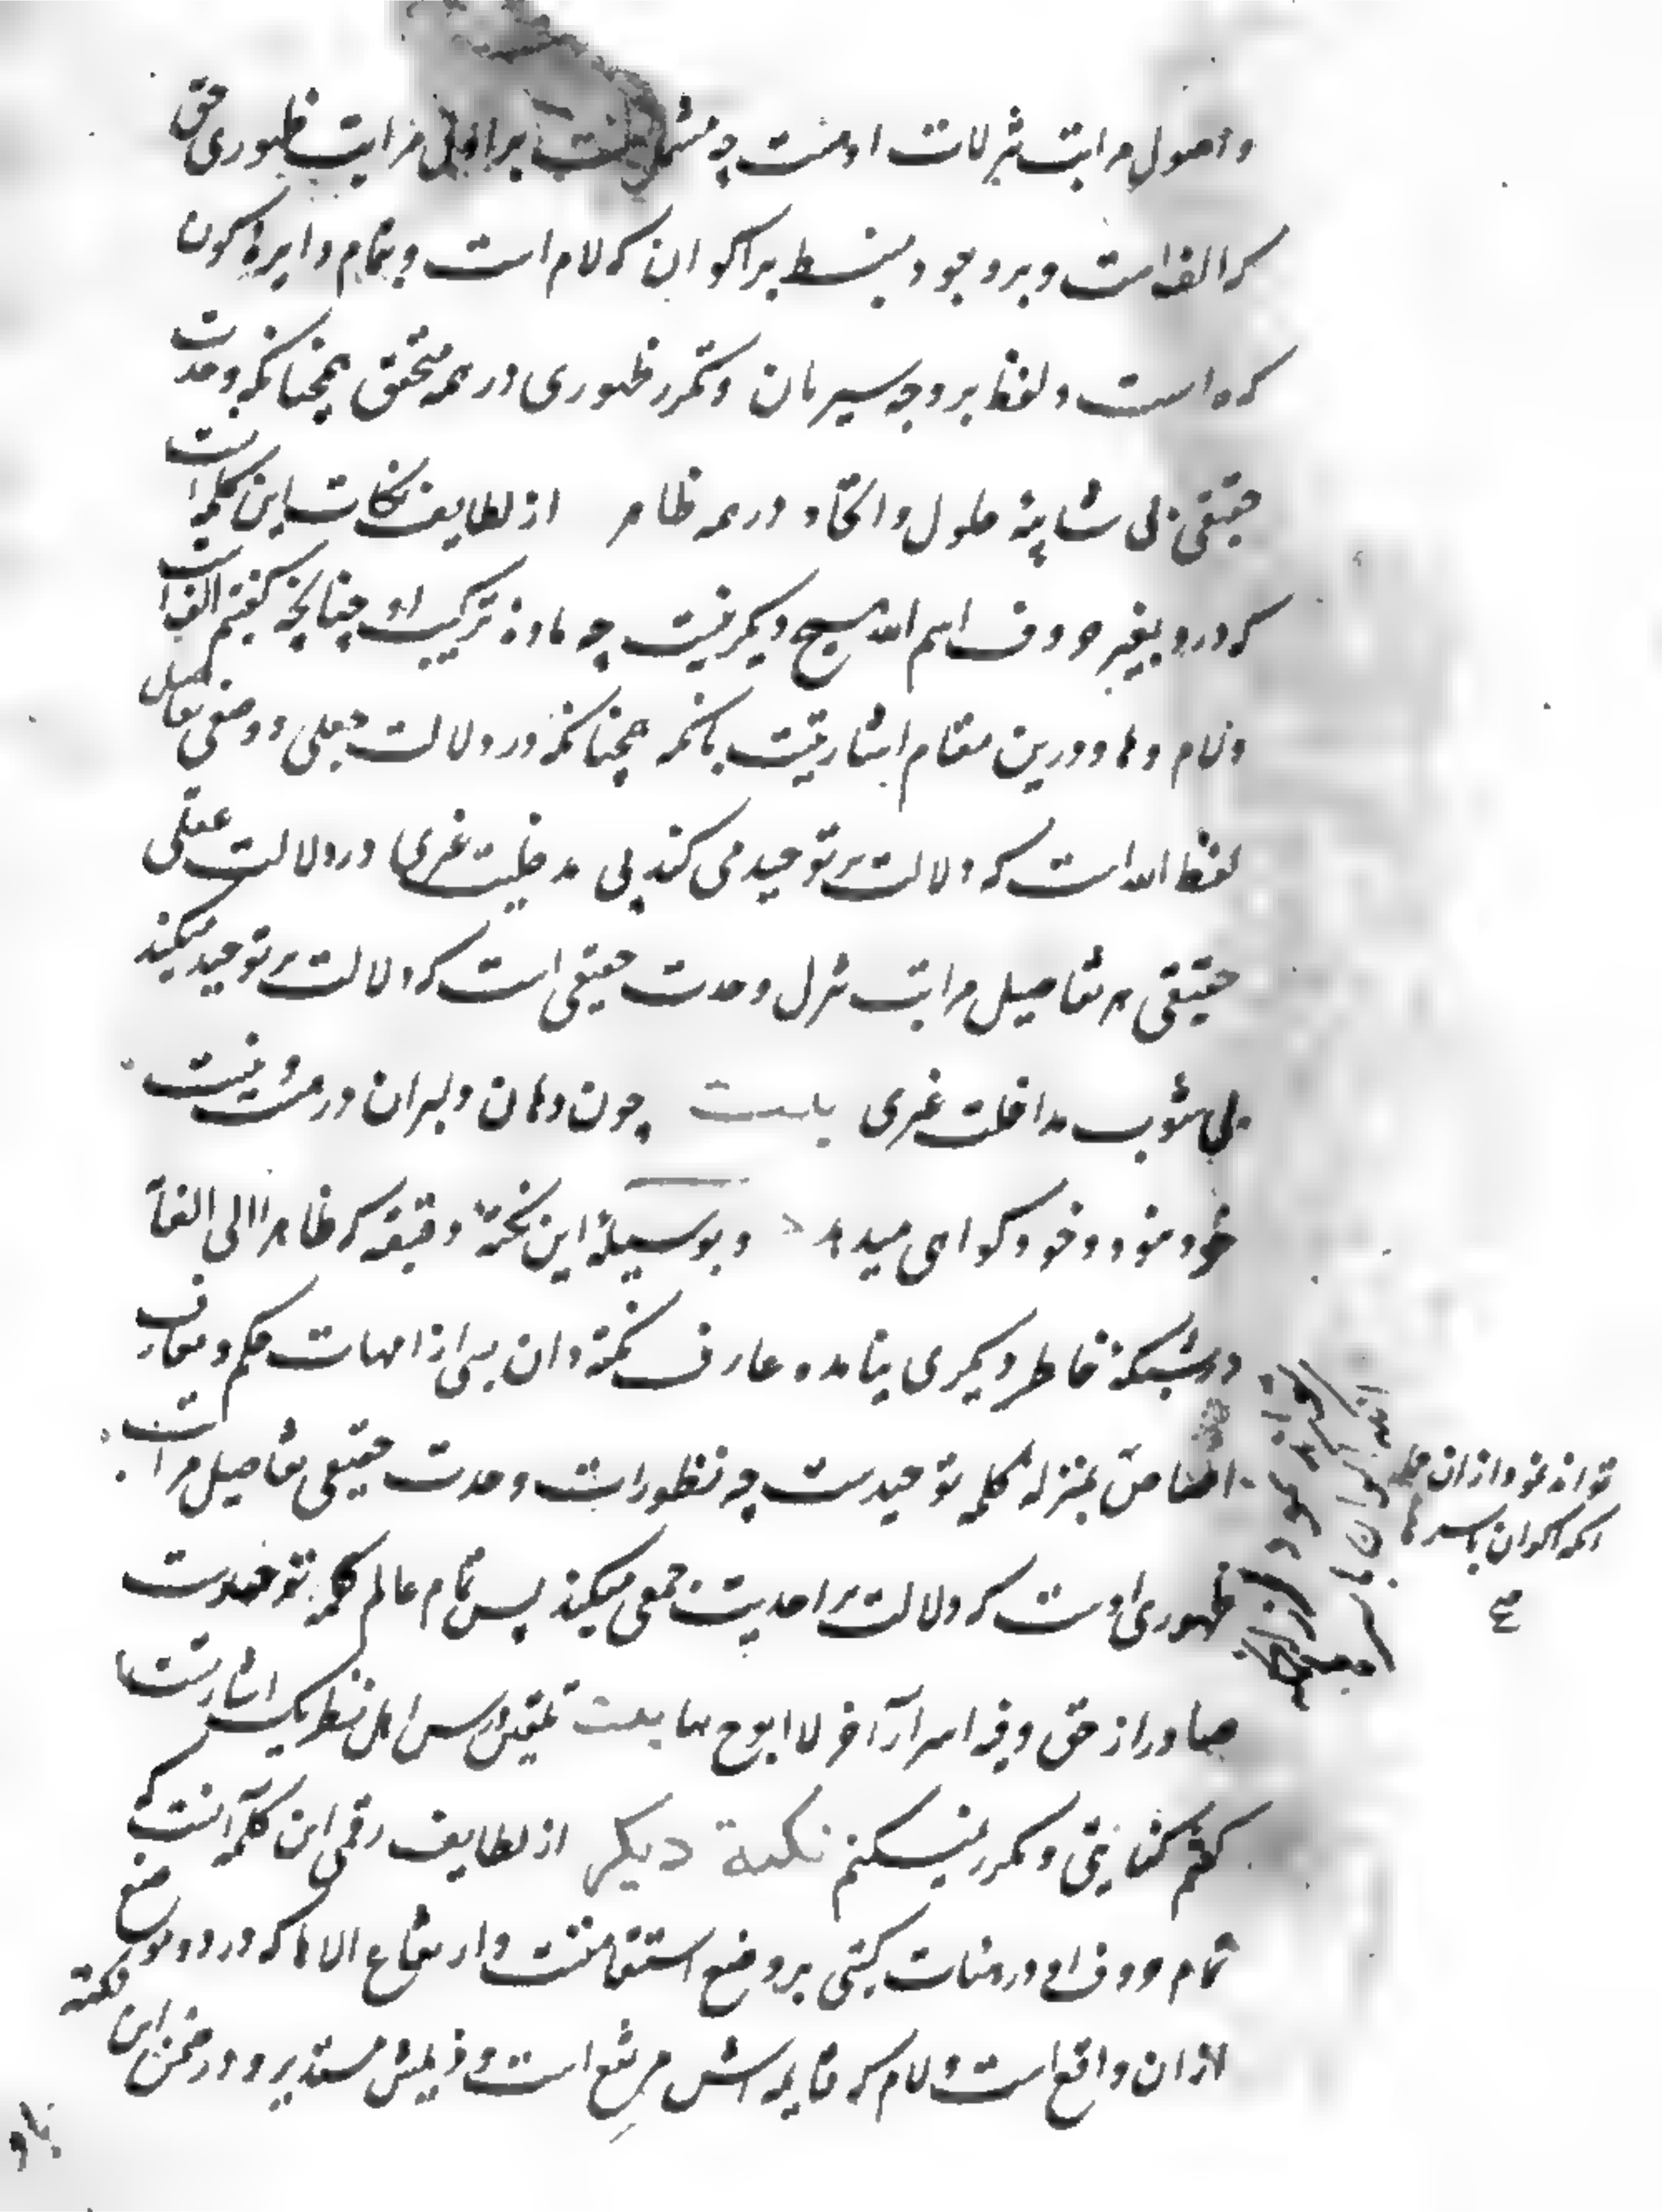 و اصول مراتب تنزلات اوست چه مشتملست بر اول مراتب ظهوری حق
که الف است و بر وجود منبسط بر اکوان که لام است و بتمام دایره کون
که ه است و لفظا بر وجه سریان و تکرر ظهوری در همه متحقق همچنانکه وحدت
حقیقی بی شایبهٔ حلول و اتحاد در همه ظاهر از لطایف نکات این کلمه است
که درو بغیر حروف اسم الله هیچ دیگر نیست چه ماده ترکیب او چنانچه گفتیم الف است
و لام و ها و درین مقام اشارتیست بانکه همچنانکه در دلالت جعلی و وضعی تفاصیل
لفظ الله است که دلالت بر توحید می کند بی مدخلیت غیری در دلالت عقلی
حقیقی هم تفاصیل مراتب تنزل وحدت حقیقی است که دلالت بر توحید میکند
بی شوب مداخلت غیری بیت چون دهان دلبران در هست و نیست
خود نمود و خود گواهی میدهد و بوسیلهٔ این نکتهٔ دقیقه که ظاهرا الی الغاة
در شبکهٔ خاطر دیگری نیامده عارف نکته دان بسی از امهات حکم و معارف
اختصاص بمنزله کلمه توحیدست چه تطورات وحدت حقیقی تفاصیل مراتب
ظهوری اوست که دلالت بر احدیت جمعی میکند پس تمام عالم کلمه توحیدست
صادر از حق و فیه اسرار آخر لا ابوح بها بیت تلقین درس اهل نظر یک اشارتست
گفتم کنایتی و مکرر نمیکنم نکتة دیگر از لطایف رقمی این کلمه آنست که
تمام حروف او در هیئات کتبی بر وضع استقامتست و ارتفاع الا ها که در دو موضع
ازان واقع است و لام که قایمه اش مرتفع است و ذیلش مستدیر و در ضمن این نکته
تواند نمود ازان
که اکوان باسرها
صح